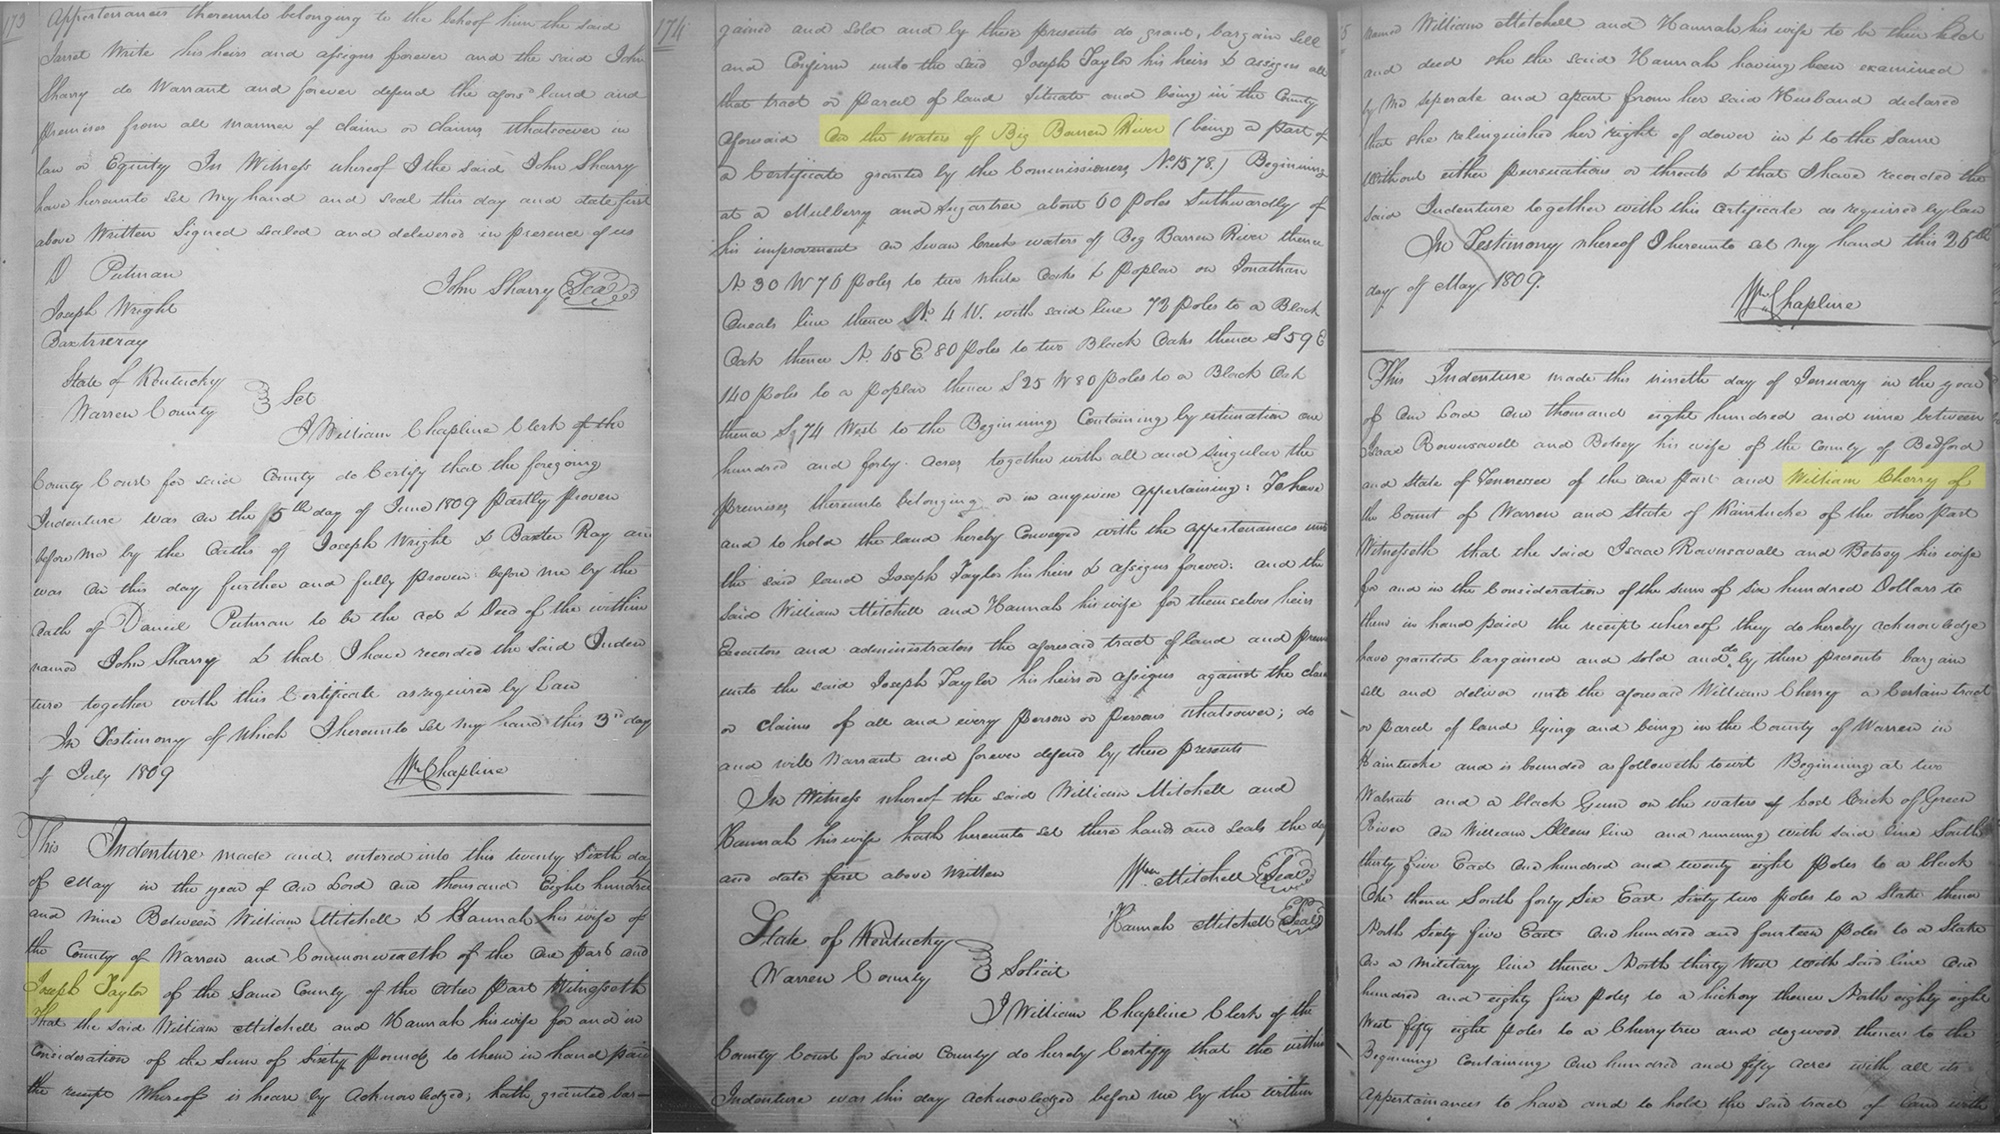 173
Appertenances thereunto belonging to the behoof him the said
Jarret Write his heirs and assigns forever and the said John
Sharry do Warrant and forever defend the afors.d land and
premises from all manner of claim or claims whatsoever in
law or Equity In Witness whereof I the said John Sharry
have hereunto set my hand and seal this day and date first
above Written Signed Sealed and delivered in presence of us
D Putman
John Sharry Seal
Joseph Wright
Baxter ray
State of Kentucky
Warren County Sct
I William Chapline Clerk of the
County Court for said County do Certify that the foregoing
Indenture was on the 5th day of June 1809 partly proven
before me by the Oaths of Joseph Wright & Baxter Ray and
was on this day further and fully proven before me by the
Oath of Daniel Putman to be the act & Deed of the within
named John Sharry & that I have recorded the said Inden
ture together with this Certificate as required by Law
In Testimony of which I hereunto set my hand this 3rd day
of July 1809
Wm Chapline
This Indenture made and entered into this twenty Sixth day
of May in the year of our Lord one thousand Eight hundred
and nine Between William Mitchell & Hannah his wife of
the County of Warren and Commonwealth of the one part and
Joseph Taylor of the Same County of the other part Witnesseth
that the said William Mitchell and Hannah his wife for and in
Consideration of the Sum of Sixty pounds to them in hand paid
the receipt Whereof is heare by Acknowledged; hath granted bar-
174
gained and sold and by these presents do grant, bargain Sell
and Confirm unto the said Joseph Taylor his heirs & assigns all
that tract or parcel of land Situate and being in the County
aforesaid on the waters of Big Barren River (being a part of
a Certificate granted by the Commissioners No. 1578.) Beginning
at a Mulberry and Sugartree about 60 poles Suthwardly of
his improvement on Swan Creek waters of Big Barren River thence
N 30 W 76 poles to two white Oaks & poplar on Jonathan
Oneals line thence N. 4 W. with said line 72 poles to a Black
Oak thence N. 65 E 80 poles to two Black Oaks thence S 59 E
140 poles to a poplar thence S 25 W 80 poles to a Black Oak
thence S. 74 West to the Beginning Containing by estimation one
hundred and forty acres together with all and singular the
premises thereunto belonging or in anywise appertaining: To have
and to hold the land hereby Conveyed with the appertenances unto
the said land Joseph Taylor his heirs & assigns forever: and the
said William Mitchell and Hannah his wife for themselves heirs
Executors and administrators the aforesaid tract of land and prem
unto the said Joseph Taylor his heirs or assigns against the claim
or claims of all and every person or persons whatsoever; do
and will Warrant and forever defend by these presents
In Witness whereof the said William Mitchell and
Hannah his wife hath hereunto set there hands and seals the day
and date first above Written
Wm Mitchell Seal
Hannah Mitchell Seal
State of Kentucky
Warren County Solicit
I William Chapline Clerk of the
County Court for said County do hereby Certify that the within
Indenture was this day acknowledged before me by the within
named William Mitchell and Hannah his wife to be their act
and deed she the said Hannah having been examined
by me seperate and apart from her said Husband declared
that she relinquished her right of dower in & to the same
without either persuations or threats & that I have recorded the
said Indenture together with this Certificate as required by law
In Testimony whereof I hereunto set my hand this 26th
day of May 1809.
Wm Chapline
This Indenture made this nineth day of January in the year
of our Lord one thousand eight hundred and nine between
Isaac Rownsavall and Betsey his wife of the County of Bedford
and State of Tennessee of the one part and William Cherry of
the Count of Warren and State of Kaintucke of the other part
Witnesseth that the said Isaac Rownsavall and Betsey his wife
for and in the Consideration of the sum of six hundred Dollars to
them in hand paid the receipt whereof they do hereby acknowledge
have granted bargained and sold and do by these presents bargain
sell and deliver unto the aforesaid William Cherry a Certain tract
or parcel of land lying and being in the County of Warren in
Kaintucke and is bounded as followeth towit Beginning at two
Walnuts and a black Gum on the waters of Lost Creek of Green
River on William Allens line and running with said line South
thirty five East one hundred and twenty eight poles to a black
Oke thence South forty Six East Sixty two poles to a Stake thence
North Sixty five East one hundred and fourteen poles to a Stake
on a military line thence North thirty West with said line one
hundred and eighty five poles to a hickory thence North eighty eight
West fifty eight poles to a Cherrytree and dogwood thence to the
Beginning Containing one hundred and fifty acres with all its
Appertainances to have and to hold the said tract of land with